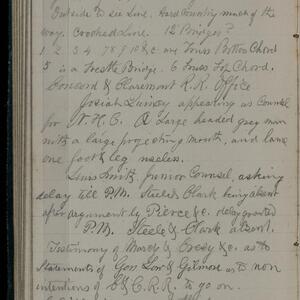 Outside to see Line. Hard Country much of the
way. Crooked Line. 12 Bridges?
1 2 3 4 7 8 9 10 &c are Towns Bottom Chord
5 is a Trestle Bridge. 6 Towns Top Chord.
Concord & Claremont R.R. Office
Josiah Quincy appearing as Counsel
for N.H.C. A large headed grey man
with a large projecting mouth, and lame
one foot & leg useless.
Smith, Junior Counsel, asking
delay till P.M. Steele & Clark being absent
after argument by Pierce &c. delay granted
P.M. Steele & Clark absent.
Testimony of & &c. as to
Statements of Gov Low & Gilmore as to non
intentions of C & C. R.R. to go on.